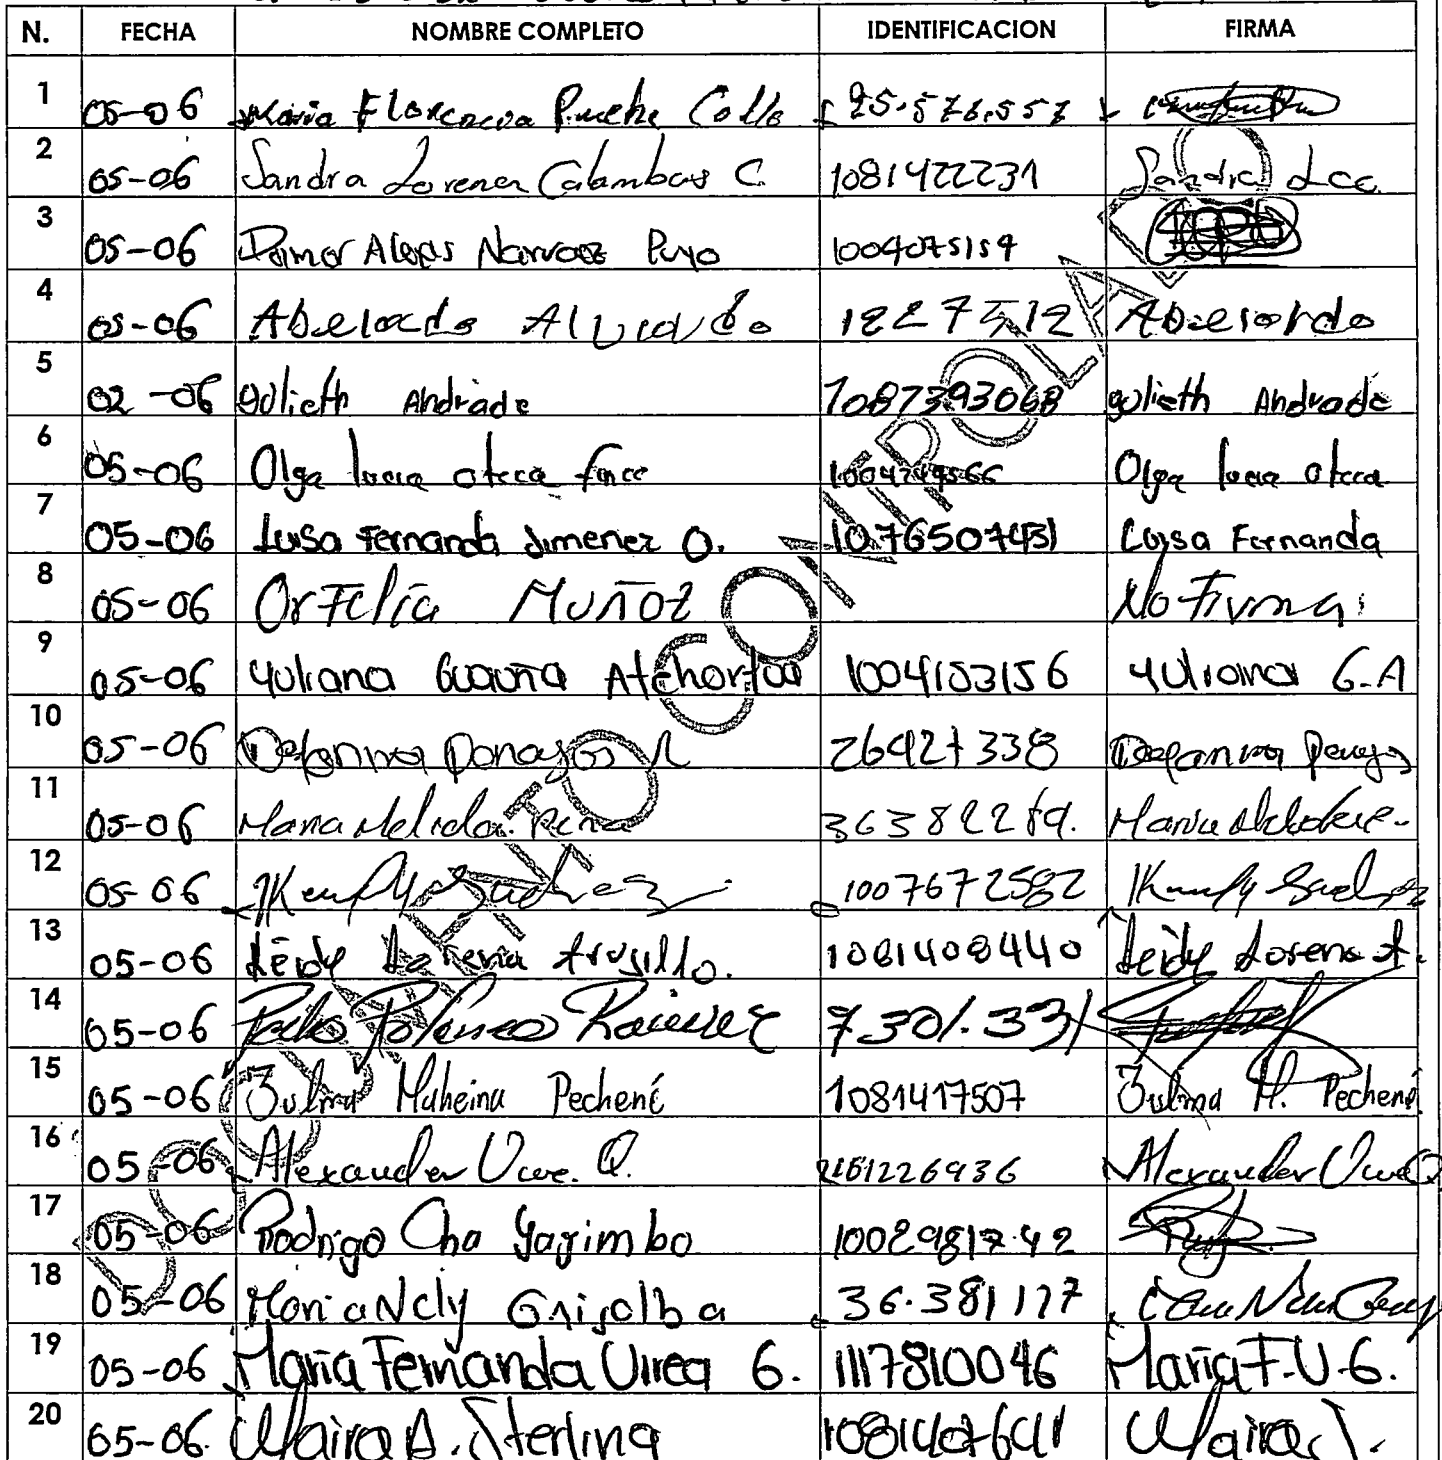 N. FECHA NOMBRE COMPLETO IDENTIFICACION FIRMA
1 05-06 Maria Florencia Puche Collo 25.576.557
2 05-06 Sandra Lorena Calambas C. 1081422231 Sandra Lcc
3 05-06 Narvaez Puyo 1004075159
4 05-06 Abelardo Alvarado 1227512 Abelardo
5 02-06 Yulieth Andrade 1087393068 Yulieth Andrade
6 05-06 Olga lucia oteca 1004249566 Olga lucia oteca
7 05-06 Luisa Fernanda Jimenez O. 1076507431 Luisa Fernanda
8 05-06 Orfelia MUÑOZ No Firma
9 05-06 Yuliana Guauña Atehortua 1004153156 Yuliana G.A
10 05-06 26427338
11 05-06 Maria Melida Peña 36382289. Maria
12 05-06 Sachez 1007672582
13 05-06 Leidy Lorena trujillo. 1081408440 Leidy Lorena t.
14 05-06 7.301.331
15 05-06 Zulma Maheina Pechené 1081417507 Zulma M. Pechené
16 05-06 Alexander Q. 1061226936 Alexander
17 05-06 Rodrigo Cha Yagimbo 1002981742
18 05-06 Maria Nely Grijalba 36.381177
19 05-06 Maria Fernanda Urrea G. 1117810046 Maria F.U.G.
20 05-06. Maira A. Sterling 1081407641 Maira S.
DOCUMENTO CONTROLADO